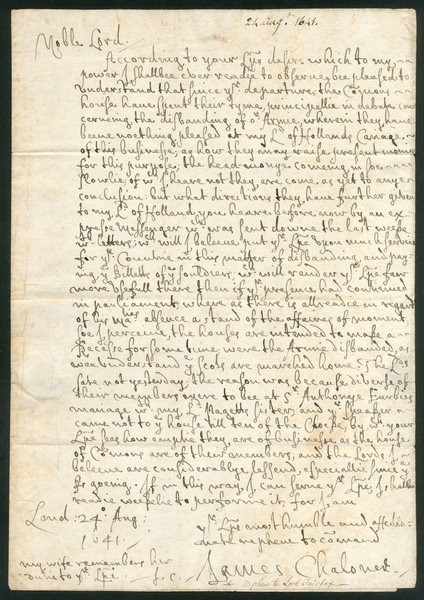 24 Aug: 1641.
Noble Lord.
According to your Lps desire, which to my
power I shallbee ever ready to observe, bee pleased to
understand that since yr departure, the Comons
house have spent their tyme, principallie in debate con
cerning the disbanding of or Armie, wherein they have
beene nothing pleased at my Ld of Hollands
of this businesse, as how they may raise present mony
for this purpose, the head monye coming in soe
slowlie, of wch
conclusion: but what directions they have further given
to my Ld of Holland, you heare before now by an ex
presse Messenger wch was sent downe the last weeke
wth letters: wch will beleeve put yr Lpe upon much service
for yr Countrie in this matter of disbanding, and pay
ing ye Billetts of ye souldiers, wch will render yr Lpe farr
more usefull there then if yr presence had continued
in parliament, where as there is allreadie in regard
of his Mats absence a stand of the affaires of moment
soe I perceive, the houses are intended to make a
Recesse for some time were the Armie disbanded, as
wee understand ye Scots are marched home. The Lds
sate not yesterday, the reason was because diverse of
their members were to bee at Sr Anthonye
mariage wth my Ld sister, and ye speaker
came not to ye house till ten of the Clocke, by wch your
Lpe sees how emptie they are of businesse as the house
of Comons are of their members, and the Lords I
beleeve are considerablye lessend, especiallie since ye
Ks going. If in this way, I can serve yr Lpe, I shalbee
readie to performe it, for I am
Lond: 24o Aug:
1641.
yr Lps most humble and affectio-
nate nephew to comand
James Chaloner
my wife remembers her
dutie to yr Lpe. J. C.
Nephew to Lord Fairfax